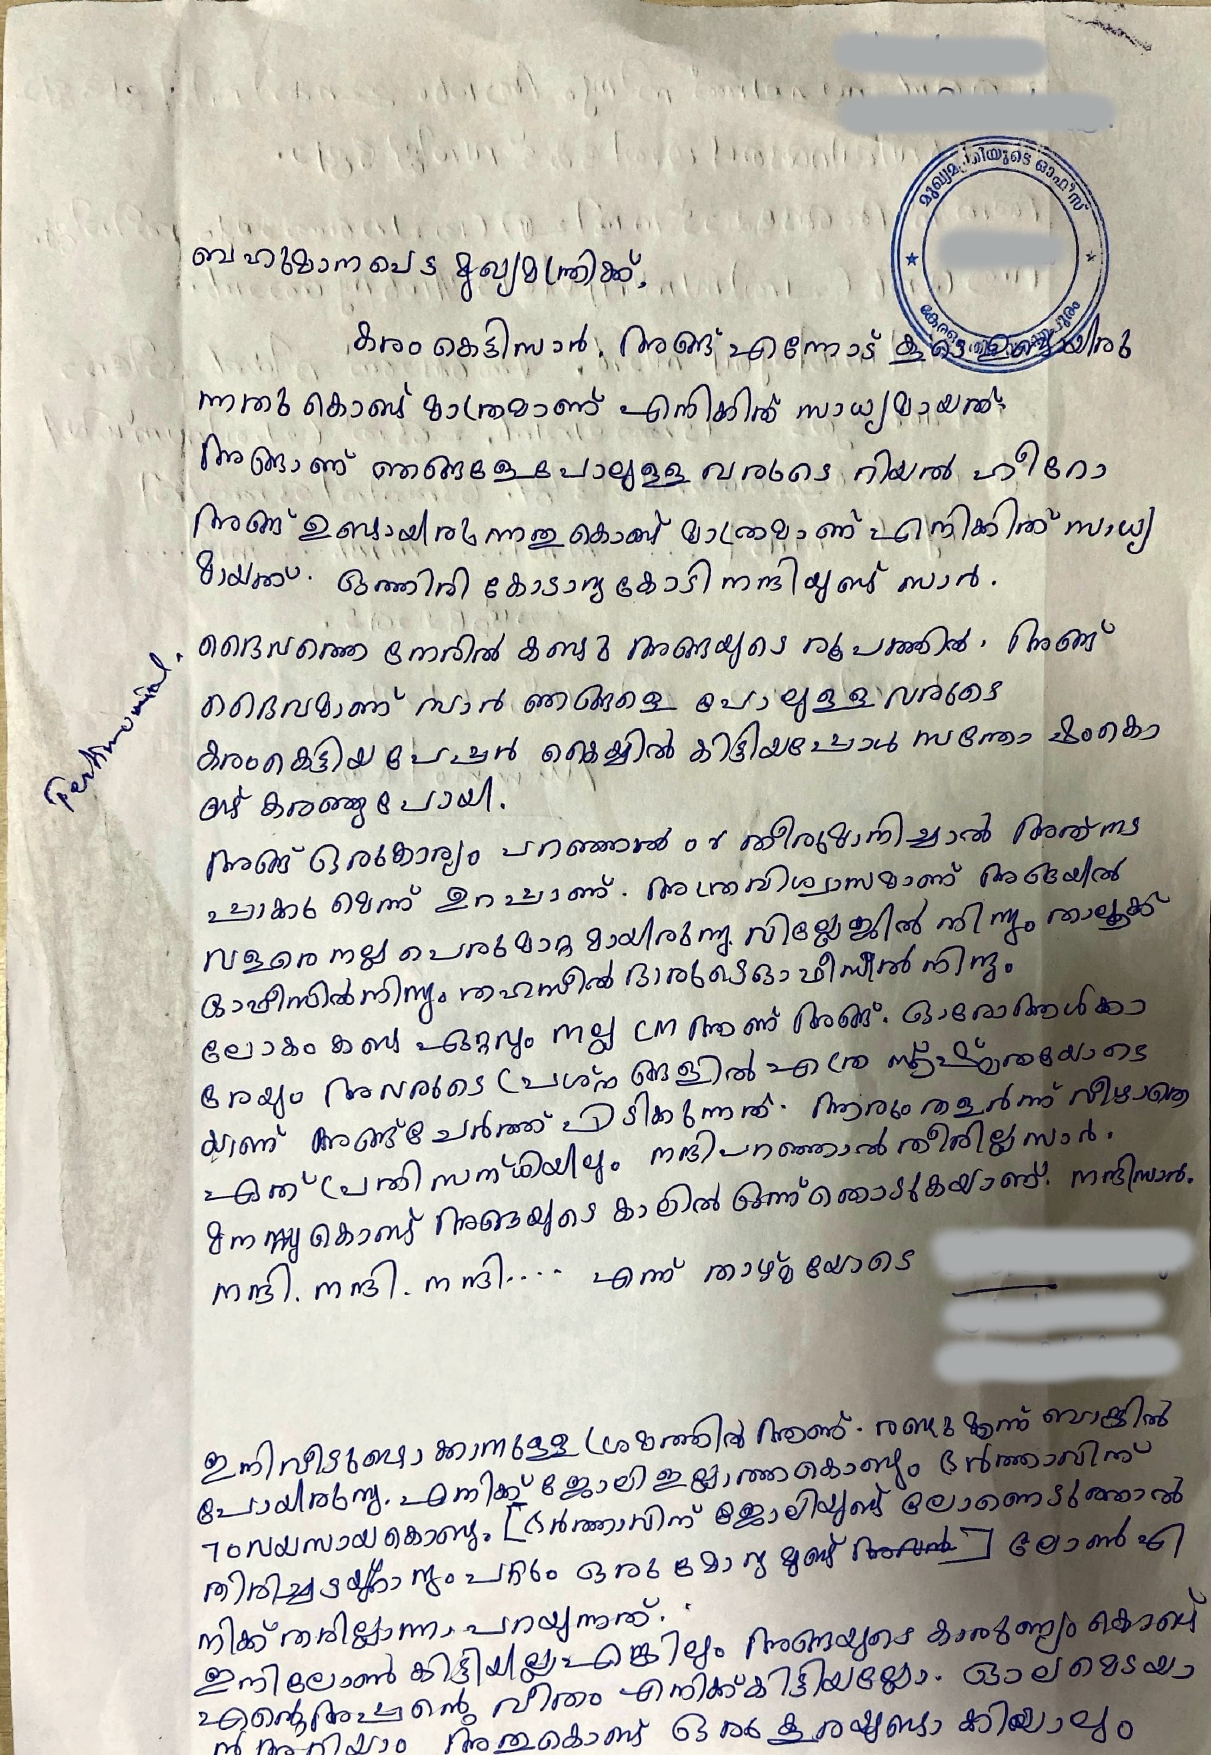 മുഖ്യമന്ത്രിയുടെ ഓഫീസ്
ബഹുമാനപെട മുഖ്യമന്ത്രിക്ക്,
കരം കെട്ടിസാർ. അങ്ങ് എന്നോട് കൂടെ ഉണ്ടായിരു
ന്നതു കൊണ്ട് മാത്രമാണ് എനിക്കിത് സാധ്യമായത്.
അങ്ങാണ് ഞങ്ങളേപോലുളള വരുടെ റിയൽ ഹീറോ
അങ്ങ് ഉണ്ടായിരുന്നതുകൊണ്ട് മാത്രമാണ് എനിക്കിത് സാധ്യ
മായത്. ഒത്തിരി കോടാനു കോടി നന്ദിയുണ്ട് സാർ.
ദൈവത്തെ നേരിൽ കണ്ടു അങ്ങയുടെ രൂപത്തിൽ. അങ്ങ്
ദൈവമാണ് സാർ ഞങ്ങളെ പോലുളള വരുടെ
കരംകെട്ടിയ പേപ്പർ കൈയ്യിൽ കിട്ടിയപ്പോൾ സന്തോഷംകൊ
ണ്ട് കരഞ്ഞുപോയി.
Testimonial.
അങ്ങ് ഒരുകാര്യം പറഞ്ഞാൽ or തീരുമാനിച്ചാൽ അത് നട
പ്പാക്കു മെന്ന് ഉറപ്പാണ്. അത്രവിശ്വാസമാണ് അങ്ങയിൽ
വളരെ നല്ല പെരുമാറ്റ മായിരുന്നു. വില്ലേജിൽ നിന്നും താലൂക്ക്
ഓഫീസിൽനിന്നും തഹസീൽ ദാരുടെഓഫീസിൽ നിന്നും
ലോകം കണ്ട ഏറ്റവും നല്ല അങ്ങ്. ഓരോആൾക്കാ
രേയും അവരുടെ പ്രശ്ന ങ്ങളിൽ എത്ര യോടെ
യാണ് അങ്ങ് ചേർത്ത് പിടിക്കുന്നത്. ആരും തളർന്ന് വീഴാതെ
ഏത് പ്രതി സന്ധിയിലും നന്ദിപറഞ്ഞാൽ തീരില്ല സാർ.
മനസ്സുകൊണ്ട് അങ്ങയുടെ കാലിൽ ഒന്ന് തൊടുകയാണ്. നന്ദിസാർ.
നന്ദി. നന്ദി. നന്ദി.... എന്ന് താഴ്മയോടെ
ഇനിവീടുണ്ടാക്കാനുളള ശ്രമത്തിൽ ആണ്. രണ്ടുമൂന്ന് ബാങ്കിൽ
പോയിരുന്നു. എനിക്ക് ജോലി ഇല്ലാത്തകൊണ്ടും ഭർത്താവിന്
70വയസായകൊണ്ടും [ഭർത്താവിന് ജോലിയുണ്ട് ലോണെടുത്താൽ
തിരിച്ചടയ്ക്കാനും പറ്റും ഒരു മോനു മുണ്ട് ] ലോൺ എ
നിക്ക് തരില്ലാന്നാ പറയുന്നത്.
ഇനിലോൺ കിട്ടിയില്ലഎങ്കിലും അങ്ങയുടെ കാരുണ്യം കൊണ്ട്
എന്റെഅപ്പന്റെ വീതം എനിക്ക്കിട്ടിയല്ലോ. ഓലമെടയാ
ൻഅറിയാം അതുകൊണ്ട് ഒരു കൂരയുണ്ടാ ക്കിയാലും